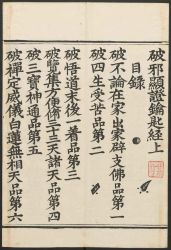 破邪顯證鑰匙經上
目錄
破不論在家出家辟支佛品第一
破四生受苦品第二
破悟道末後一着品第三
破覽集九便僊三十三天諸天品第四
破三寶神通品第五
破禪定威儀白蓮無相天品第六